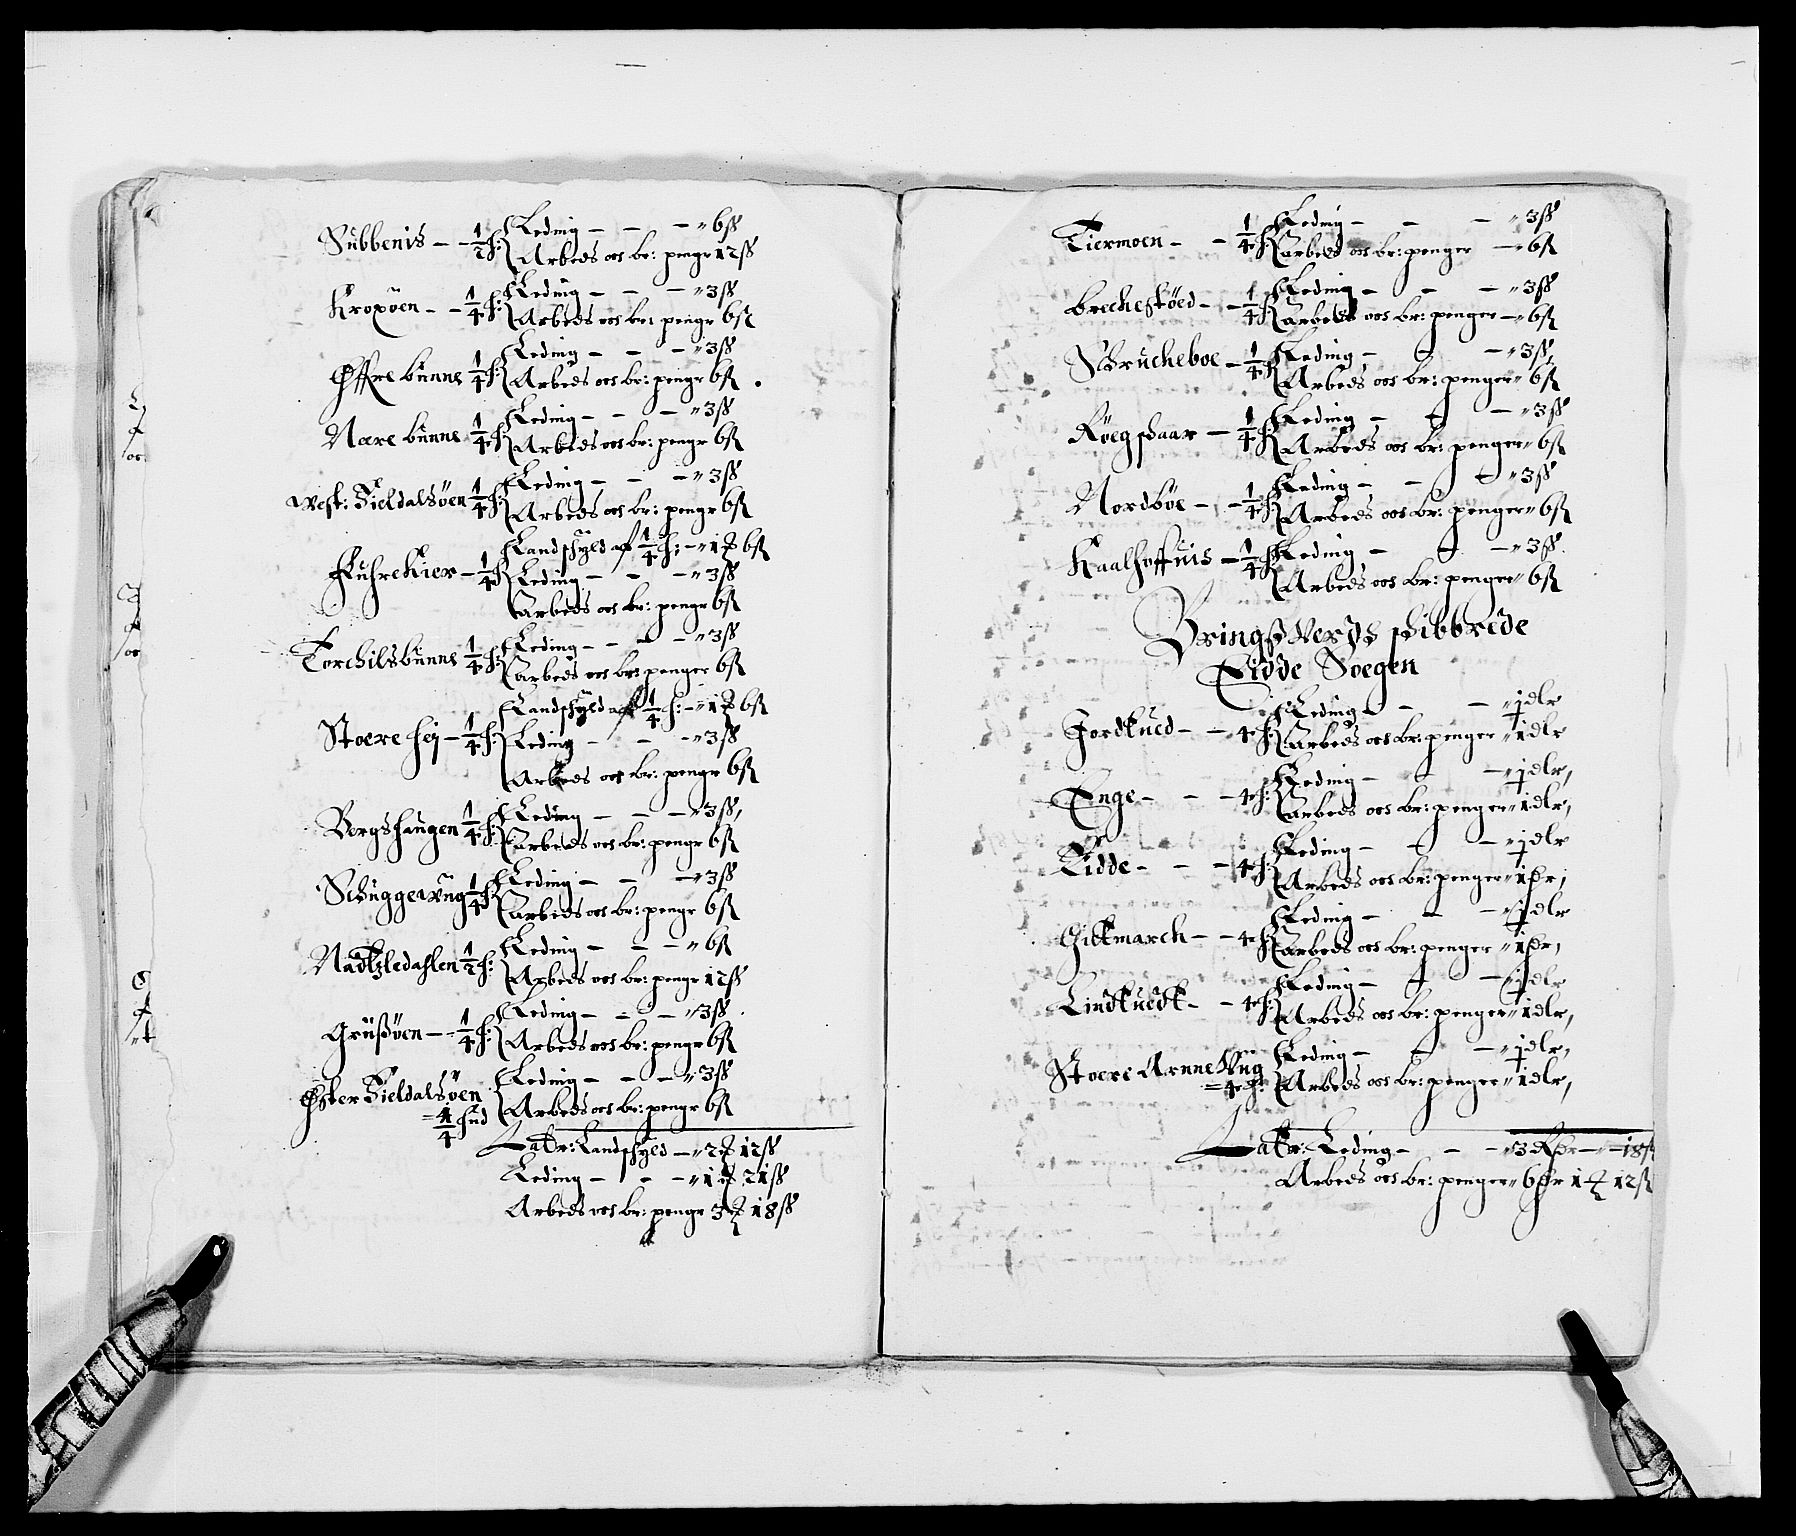 Subbenis – – ½ h: Leding – – – „ 6 ß
Arbeds oc br: penge 12 ß
Kroxöen – – ¼ h: Leding – – – „ 3 ß
Arbeds oc br: penge 6 ß
Øffre bunne ¼ h: Leding – – – „ 3 ß
Arbeds oc br: penge 6 ß
Nære bunne ¼ h: Leding – – – „ 3 ß
Arbeds oc br: penge 6 ß
west: Fieldalsöen ¼ h: Leding – – – „ 3 ß
Arbeds oc br: penge 6 ß
Fuhrekier – ¼ h Landschÿld aff ¼ h: – „ 1 ₰ 6 ß
Leding – – – „ 3 ß
Arbeds oc br: penge 6 ß
Torchilsbunne ¼ h: Leding – – – „ 3 ß
arbeds oc br: penger 6 ß
Stoere hej – ¼ h: Landschÿld aff ¼ h: – „ 1 ₰ 6 ß
Leding – – – „ 3 ß
Arbeds oc br: penge 6 ß
Bergshaugen ¼ h: Leding – – – „ 3 ß,
arbeds oc br: penge 6 ß
Schuggerung ¼ h: Leding – – – 3 ß
arbeds oc br: penge 6 ß
Nadtzledahlen ½ h: Leding – – – „ 6 ß
Arbeds oc br: penge 12 ß
Grüßöen – – ¼ h: Leding – – – „ 3 ß
Arbeds oc br: penge 6 ß
Øster Fieldalsöen
= ¼ hud Leding – – – „ 3 ß
Arbeds oc br: penge 6 ß
Latr: Landschÿld – „ 2 ₰ 12 ß
Leding – – – „ 1 ₰ 21 ß
Arbeds oc br: penge 3 ₰ 18 ß
Tiermoen – – ¼ h: Leding – – – „ 3 ß
arbeds oc br: penger – „ 6 ß
brechestöed – – ¼ h: Leding – – – „ 3 ß
arbeds oc br: penger – „ 6 ß
Schrucheboe – ¼ h: Leding – – – „ 3 ß,
Arbeds oc br: penger „ 6 ß
Röegshaar – ¼ h: Leding – – – „ 3 ß
Arbeds oc br: penger „ 6 ß
Nordböe – – ¼ h: Leding – – – „ 3 ß
Arbeds oc br: penger „ 6 ß
Kaalhoffuis – ¼ h: Leding – – – „ 3 ß
Arbeds oc br: penger „ 6 ß
Bringsverds schibbrede
Eidde Soegen
Jordkued – – 4 h: Leding – – – „ j dlr
Arbeds oc br: penger „ 1 dlr
Enge – – – 4 h: Leding – – – „ j dlr,
arbeds oc br: penger „ 1 dlr,
Eidde – – – 4 h: Leding – – – „ j dlr
Arbeds oc br: penger „ 1 dr,
Gittmarch – – 4 h: Leding – – – „ j dlr
arbeds oc br: penger „ 1 dr,
Lindtuedt – – 4 h: Leding – – – „ j dlr
Arbeds oc br: penger „ 1 dlr,
Stoere Arnneuug
= 4 h: Leding – – – „ j dlr,
Arbeds oc br: penger „ 1 dlr,
Latr: Leding – – – „ 3 Rdr – „ – 18 ß
Arbeds oc br: penger „ 6 dr 1 ₰ 12 ß